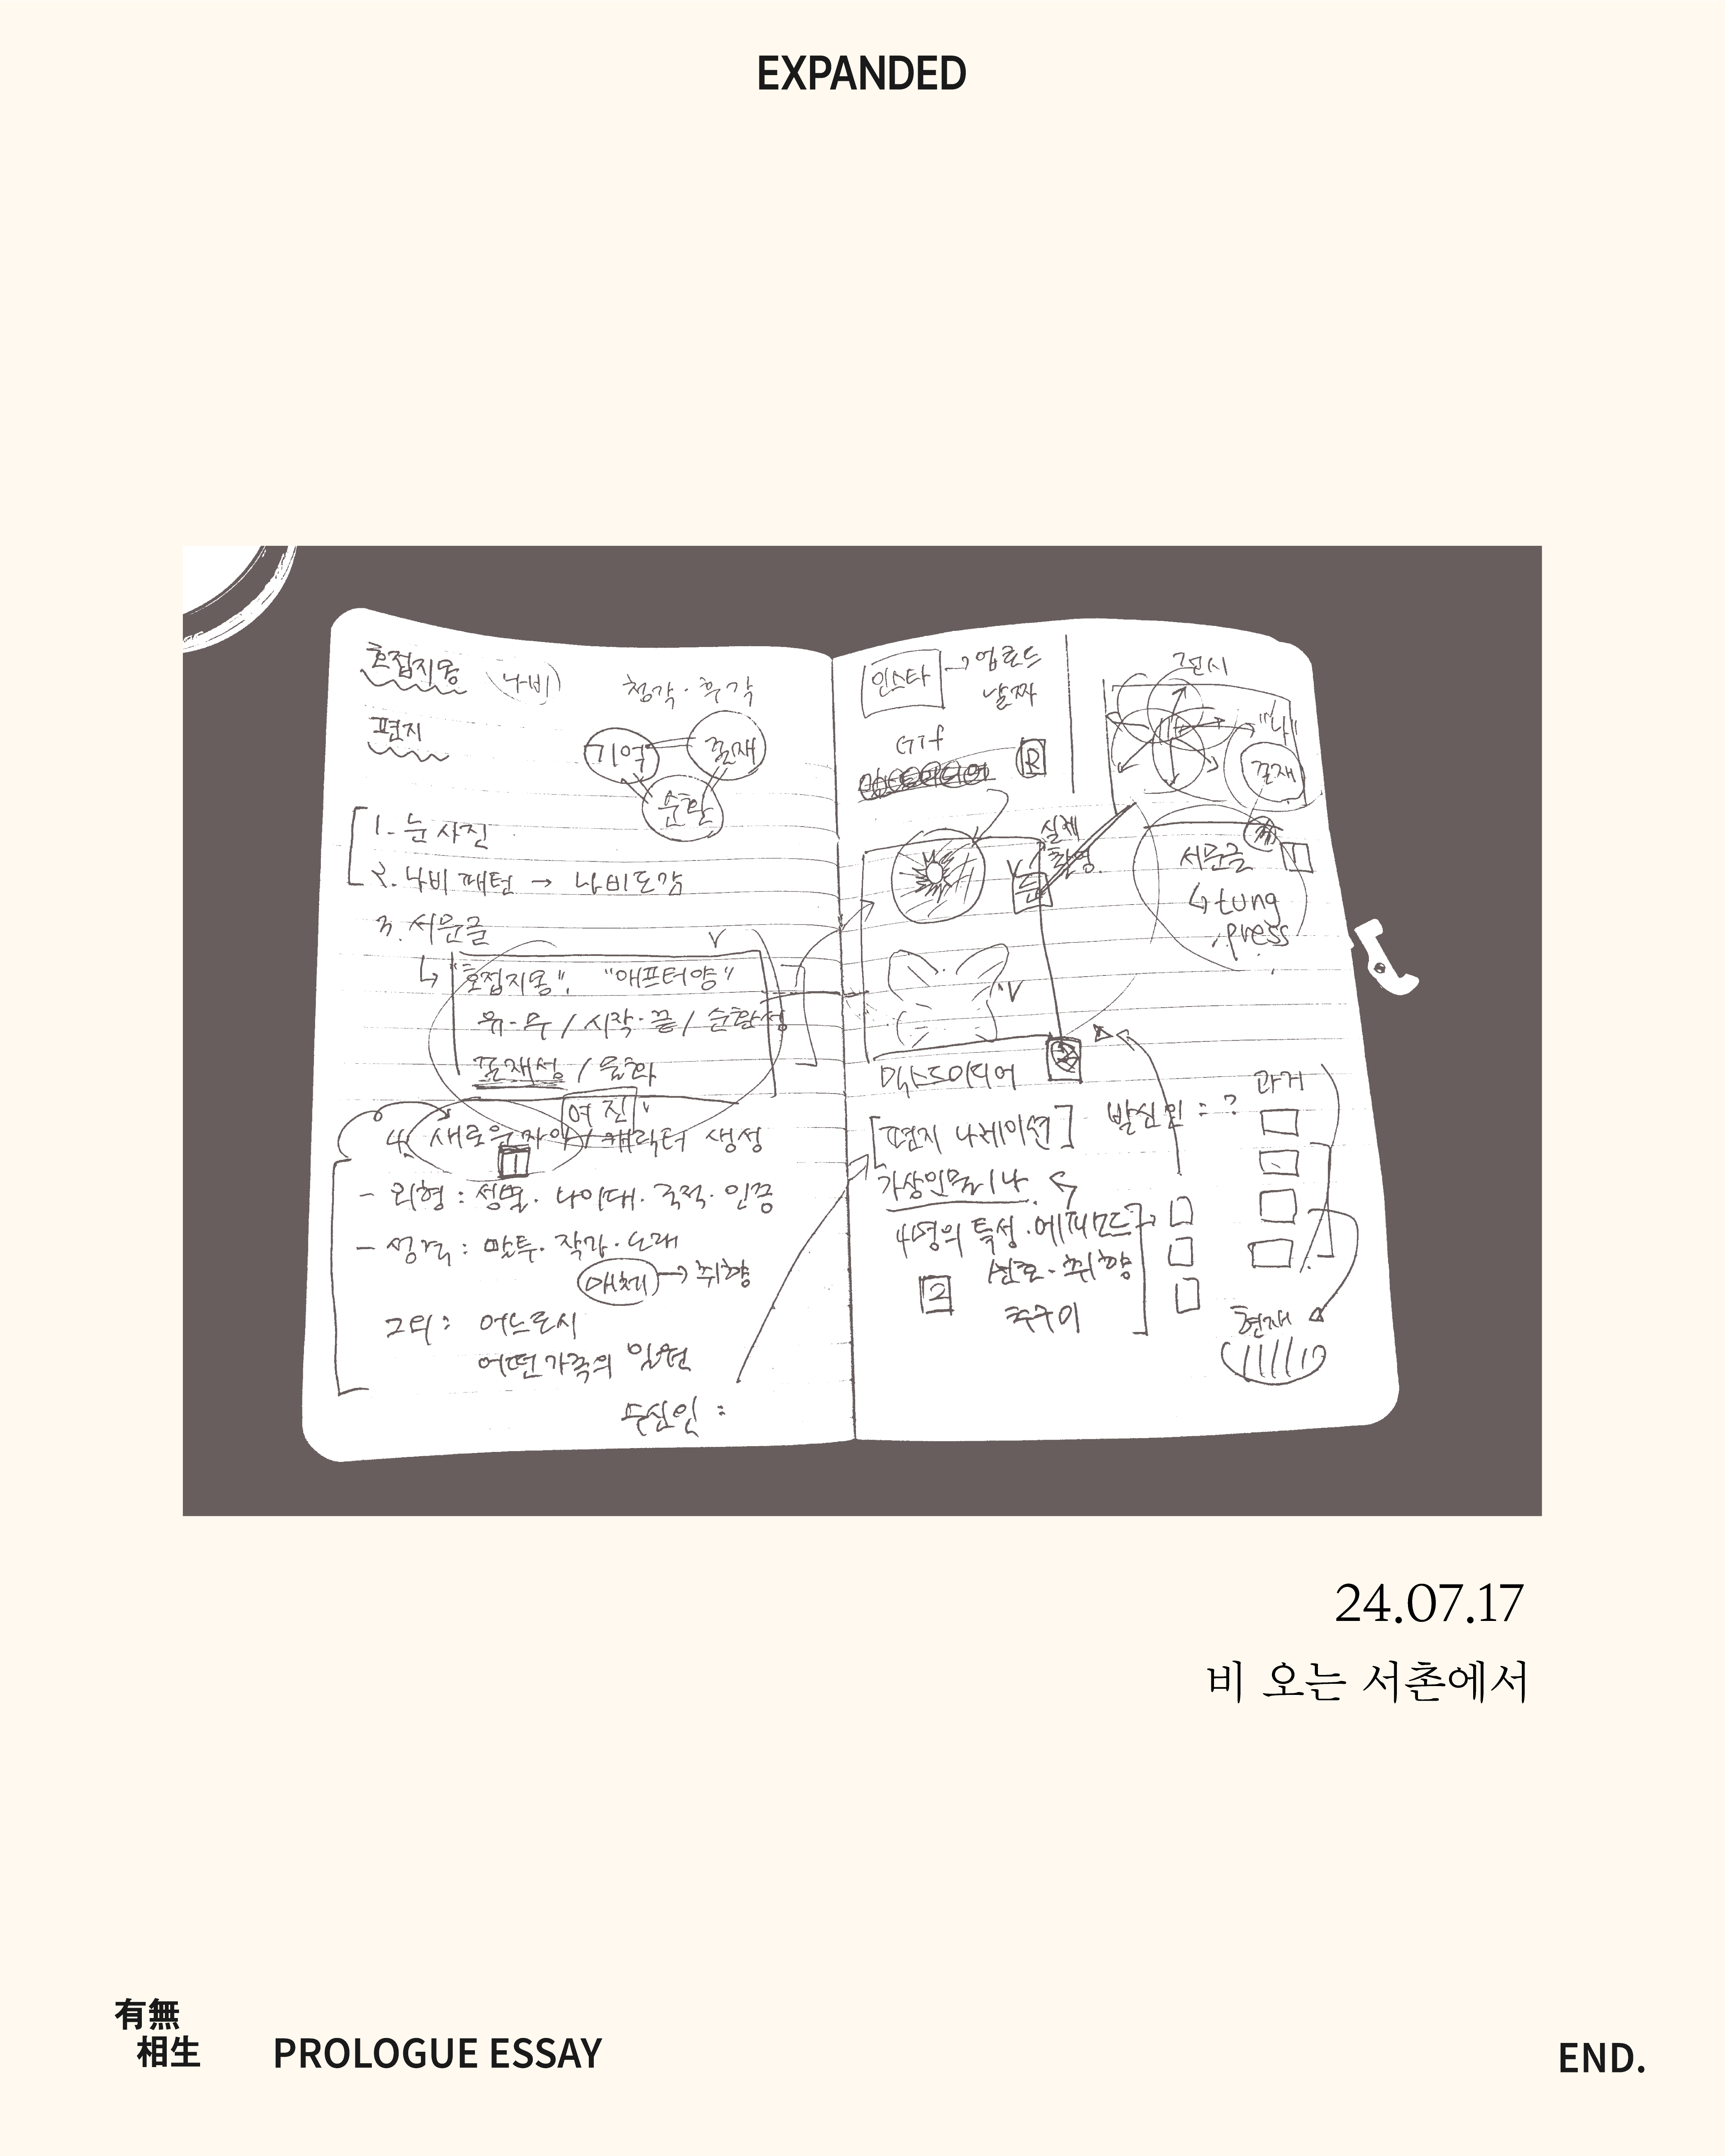 EXPANDED
호접지몽 (나비) 청각·후각
편지
기억 존재
순환
1. 눈 사진
2. 나비 패턴 → 나비도감
3. 서문글
↳ "호접지몽", "애프터양"
유·무 / 시작·끝 / 순환성
존재성 / 윤회
여진
4. 새로운 자아 / 캐릭터 생성
1
- 외형 : 성별· 나이대· 국적· 인종
- 성격 : 말투· 작감· 노래
매체 → 취향
그외 : 어느도시
어떤가족의 일원
수신인 :
인스타 → 업로드
날짜
Gif
R
실제
촬영.
눈
믹스드미디어
[편지 나레이션]
가상인물 / 나
4명의 특성·에피소드
취향
2
전시
"나"
존재
서문글
1
↳ tung
press
발신인 = ?
과거
현재
24.07.17
비 오는 서촌에서
有無
相生
PROLOGUE ESSAY
END.